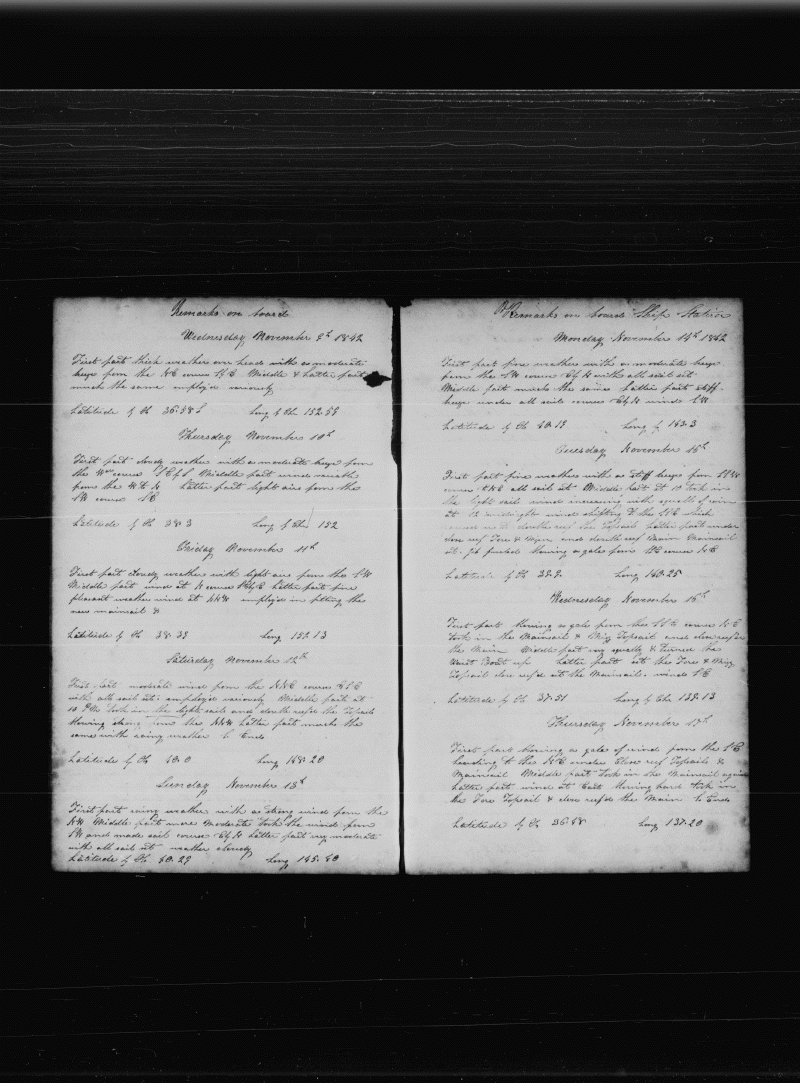 Remarks on board
Wednesday November 9th 1842
First part thick weather an head with a moderate
from the NE course Middle & Latter part
much the same employed variously
Latitude by Ob 36..58 S Long by Chr 152..59
Thursday November 10th
First part cloudy weather with a moderate from
the course SE by S Middle part wind variable
from the to Latter part light airs from the
SW course SE
Latitude by Ob 38..3 Long by Chr 152
Friday November 11th
First part cloudy weather with light airs from the SW
Middle part wind at course Latter part fine
pleasant weather wind at employed in fitting the
new mainsail &
Latitude by Ob 38..39 Long 152..13
Saturday November 12th
First part moderate wind from the NNE course ESE
with all sail out employed variously Middle part at
10 PM took in the light sails and double reefd the Topsails
blowing strong from the NNW Latter part much the
same with rainy weather So Ends
Latitude by Ob 40..0 Long 148..20
Sunday November 13th
First part rainy weather with a strong wind from the
NW Middle part more moderate took the wind from
SW and made sail course E by N Latter part very moderate
with all sail out weather cloudy
Latitude by Ob 40..29 Long 145..40
Remarks on board Ship Station
Monday November 14th 1842
First part fine weather with a moderate
from the SW course E by N with all sail out
Middle part much the same Latter part stiff
under all sail course E by N wind SW
Latitude by Ob 40..19 Long by 143..3
Tuesday November 15th
First part fine weather with a stiff from SSW
course ENE all sail out Middle part at 10 took in
the light sails wind increasing with squalls of rain
At 12 midnight wind shifting to the SSE
double reef the Topsails Latter part under
close reef Fore & Mizen and double reef Main Mainsail
blowing a gale from course NE
Latitude by Ob 39..9 Long 140..25
Wednesday November 16th
First part blowing a gale from the course NE
Took in the Mainsail & Mizn Topsail and close reefd
the Main Middle part very squally & turned the
Waist Boat up Latter part set the Fore & Mizn
Topsail close reefd set the Mainsail wind SE
Latitude by Ob 37..51 Long by Chr 139..13
Thursday November 17th
First part blowing a gale of wind from the SE
heading to the NE under Close reef Topsails &
Mainsail Middle part took in the Mainsail again
Latter part wind at East blowing hard took in
the Fore Topsail & close reefd the Main So Ends
Latitude by Ob 36..48 Long 137..20